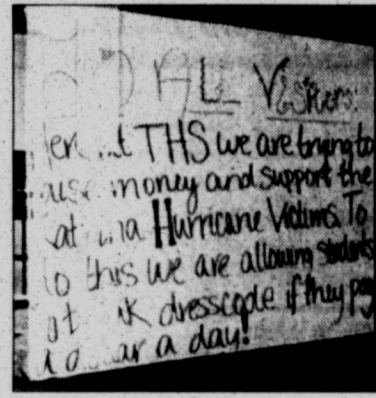 ALL Visitors:
THS we are trying to
money and support the
Hurricane Victims. To
this we are allowing students
dresscode if they pay
a day!